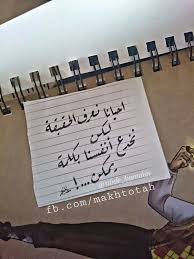 احيانا نعرف الحقيقة
لكن
نخدع أنفسنا بكلمة
يمكن...!
fb.com/makhtotah